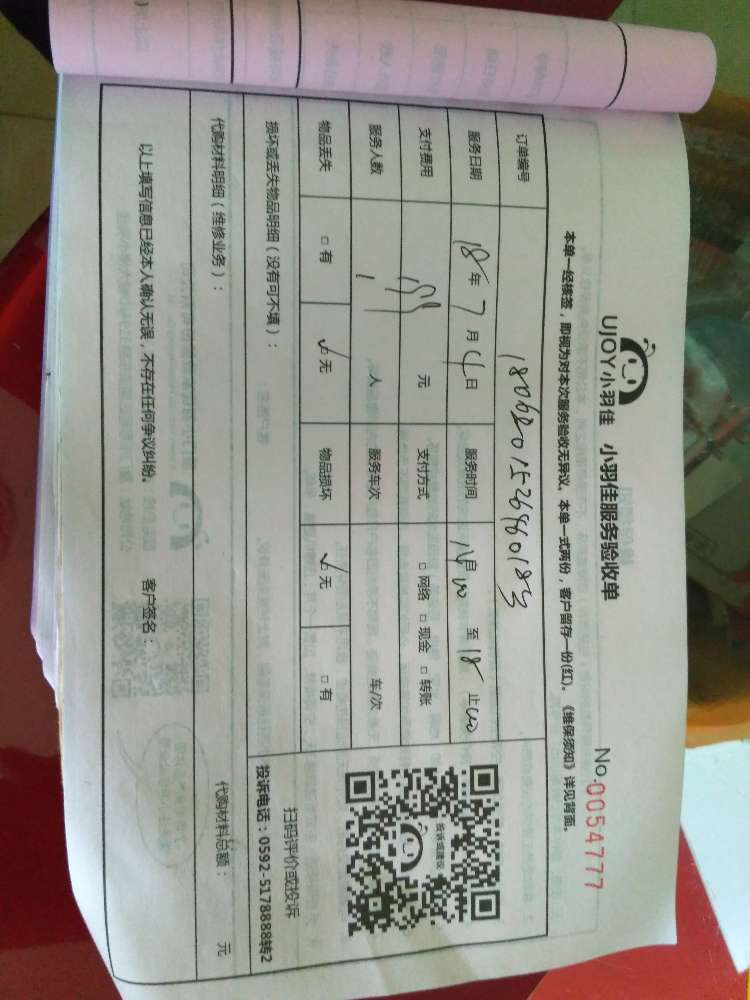 UJOY小羽佳 小羽佳服务验收单
No.0054777
本单一经核签，即视为对本次服务验收无异议。本单一式两份，客户留存一份(红)。《维保须知》详见背面。
订单编号
服务日期 18年7月4日 服务时间 14自00 至18止00
支付费用 元 支付方式 □网络 □现金 □转账
服务人数 1 人 服务车次 车/次
物品丢失 □有 ☑无 物品损坏 ☑无 □有
损坏或丢失物品明细（没有可不填）：
投诉或建议
扫码评价或投诉
投诉电话：0592-5178888转2
代购材料明细（维修业务）：
代购材料总额： 元
以上填写信息已经本人确认无误，不存在任何争议纠纷。 客户签名：